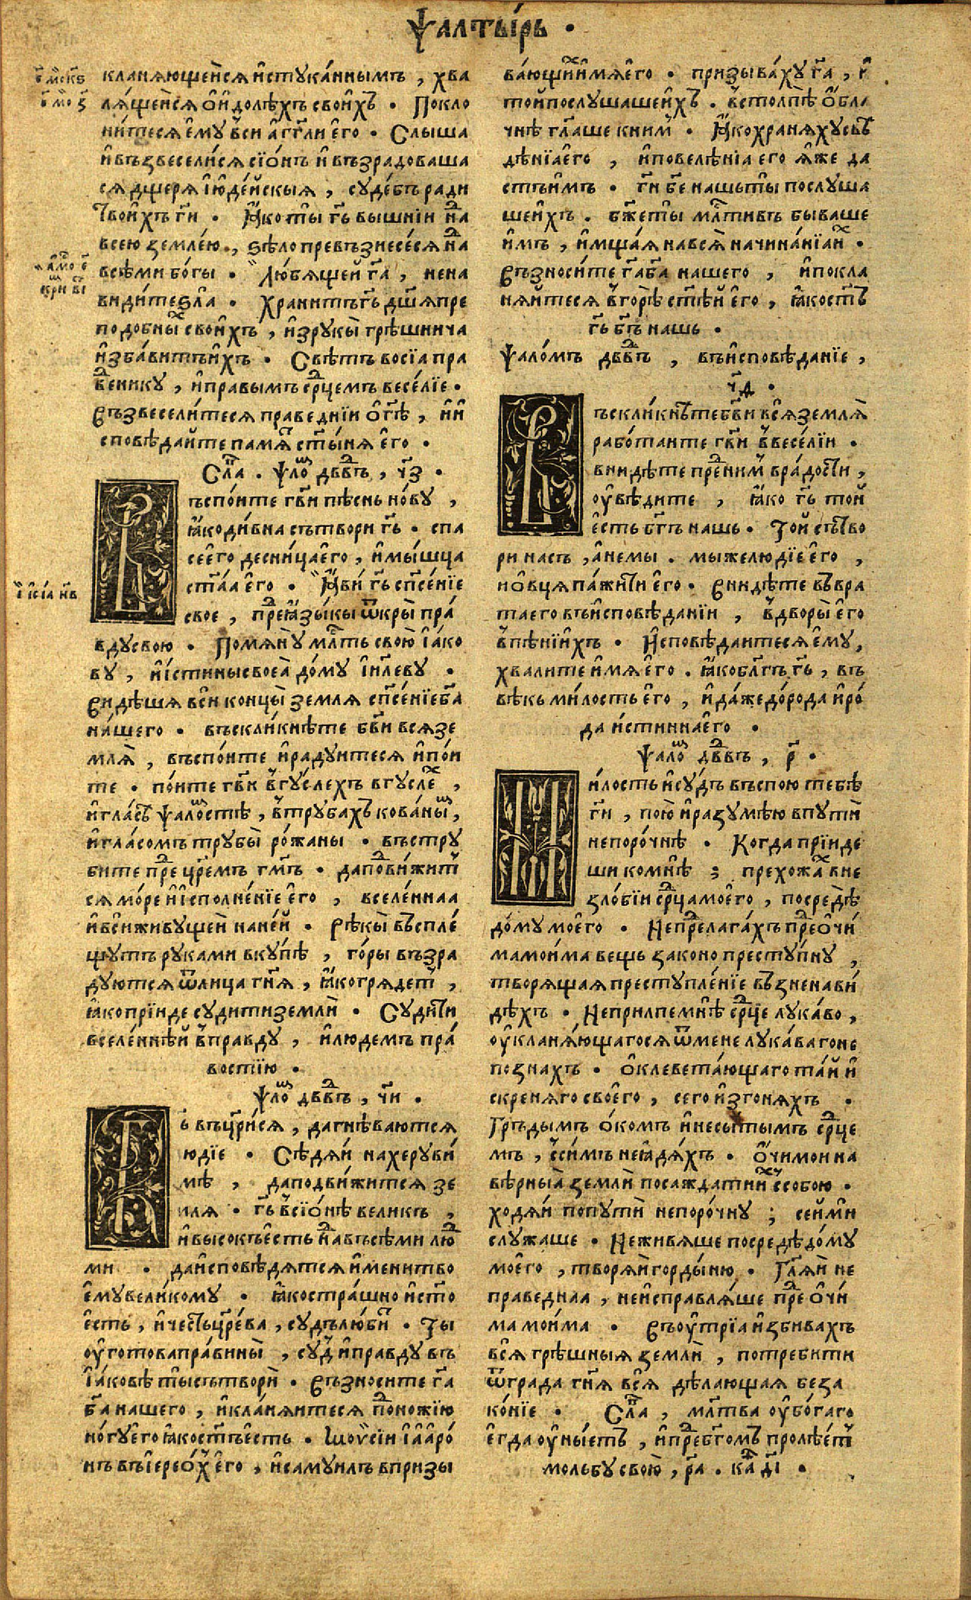 Ѱалты́рь ·
кланѧющейсѧ и҆стꙋка́ннымъ , хва
лѧ́щейсѧ ѡ҆ и҆́долѣхъ свои́хъ · Покло
ни́тесѧ є҆мꙋ̀ вси̑ а҆́гг҃ли є҆го̀ · Слы́ша
и҆ въꙁвесели́сѧ сїѡ́нъ и҆ въꙁрадоваша
сѧ дщерѧ і҆юде́йскыѧ , сꙋде́бъ ради
твои́хъ гⷭ҇и · Ꙗ҆́ко ты̀ гь҃ вышнїи на
всею̀ ꙁемле́ю , ѕѣло превъꙁнесе́сѧ на
всѣ́ми бо́гы · Лю́бѧщей га҃ , нена
ви́дите ꙁла̀ · храни́тъ гь҃ дш҃ѧ пре
подобны́ свои́хъ , и҆ꙁрꙋкы̀ грѣ́шнича
и҆ꙁба́витъ и҆́хъ · Свѣ́тъ восїа̀ пра
ве́никꙋ , и҆ правымъ срⷣцемъ весе́лїе ·
въꙁвесели́тесѧ праведнїи ѡ҆ гⷭ҇ѣ , и҆ и҆
сповѣ́дайте памѧⷮ ст҃ы́нѧ є҆го̀ ·
Сла́ · Ѱло́ дв҃дъ , ч҃ꙁ ·
ъспо́ите гв҃и пѣ́снь новꙋ ,
ꙗ҆ко ди́вна сътвори̑ гь҃ · спа
се є҆го̀ десни́ца є҆го̀ , и҆ мы́шца
ст҃а́а є҆го̀ · Ꙗ҆ви̑ гь҃ сп҃се́нїе
свое , преⷣ ꙗ҆ꙁы́кы ѿкры̀ пра́
вдꙋ свою · Помѧнꙋ̀ млⷭ҇ть свою̀ і҆а́ко
вꙋ , и҆ и҆́стинꙋ своеѧ̀ до́мꙋ і҆и҃левꙋ ·
видѣшѧ вси̑ концы̀ ꙁемлѧ сп҃се́нїе ба҃
на́шего · въскли́кнѣте бв҃и всѧ ꙁе
млѧ̀ , въспо́ите и҆ радꙋ́итесѧ и҆ по́и
те · по́ите гв҃и в гꙋ́слехъ в гꙋслеⷯ ,
и҆ гла́сѡⷨ ѱало́стѣ , в трꙋба́хъ кованыⷯ ,
и҆ гла́сомъ трꙋбы̀ ро́жаны · въстрꙋ
бите преⷣ цр҃емъ гм҃ъ · да подви́житⷭ
сѧ мо́ре и҆ и҆сполне́нїе є҆го̀ , вселе́ннаа
и҆ вси̑ живꙋщеи на не́й · Рѣ́кы въспле́
щꙋтъ рꙋками вкꙋпѣ , го́ры въꙁра
дꙋютсѧ ѿ лица гн҃ѧ , ꙗ҆ко грѧде́тⷮ ,
ꙗ҆ко прїиде сꙋдити ꙁемли̑ · Сꙋди́ти
вселе́ннѣй в правдꙋ , и҆ лю́демъ пра́
востїю ·
Ѱло́ дв҃дъ , ч҃и ·
ь въцр҃и́сѧ , да гнѣ́ваютсѧ
юдїе · Сѣдѧ́й на херꙋви́
мѣ , да подви́житсѧ ꙁе
млѧ · гь҃ в сїѡ́нѣ великъ ,
и҆ высокъ є҆сть на въсѣ́ми люⷣ
ми · да и҆сповѣ́дѧтсѧ и҆́мени тво
є҆мꙋ вели́комꙋ · ꙗ҆ко стра́шно и҆ сто
є҆́сть , и҆ че́сть цр҃ева , сꙋдъ лю́би · Ты
ѹ҆гото́ва пра́вины , сꙋⷣ и҆ правдꙋ въ
і҆а́ковѣ ты̀ сътвори̑ · въꙁносите га҃
ба҃ нашего , и҆ кланѧ́итесѧ поⷣножїю
но́гꙋ є҆го̀ ꙗ҆ко стъ є҆сть · Моѵси́и і҆ а҆аро́
нъ въ і҆ерео́хъ є҆го̀ , и҆ самꙋилъ в при́ꙁы
ва́ющиⷯ и҆́мѧ є҆го̀ · приꙁы́вахꙋ га҃ , и҆
той послꙋ́шаше и҆́хъ · в столпѣ̀ ѡ҆́бла
чнѣ гл҃аше к ни́мъ · Ꙗ҆ко хранѧ́хꙋ свѣ
дѣнїа є҆го̀ , и҆ повелѣнїа є҆го ꙗ҆же да
стъ и҆́мъ · ги҃ бе҃ нашь ты̀ послꙋша
ше и҆́хъ · бж҃е ты̀ млⷭ҇тивъ быва́ше
и҆́мъ , и҆ мща́ѧ на всѧ̑ начина́нїа и҆хъ ·
въꙁноси́те га҃ ба҃ нашего , и҆ покла
нѧ́йтесѧ в горѣ̀ ст҃ѣ́й є҆го̀ , ꙗ҆ко стъ
гь҃ бг҃ъ нашь ·
Ѱало́мъ дв҃дъ , въ и҆сповѣ́данїе ,
ч҃ѳ ·
ъсклиќнѣте бв҃и всѧ̑ ꙁемлѧ̀
рабо́таите гв҃и в весе́лїи ·
вни́дѣте преⷣ ни́мъ в ра́дости ,
ѹ҆вѣ́дите , ꙗ҆́ко гь҃ той
є҆́сть бг҃ъ нашь · То́й сътво
ри насъ , а҆ не мы · мы же лю́дїе є҆го̀ ,
и҆ ѡ҆́вцѧ па́жити є҆го · вни́дѣте въ вра
та є҆го въ и҆сповѣ́данїи , в дворы̀ є҆го
в пѣ́нїихъ · И҆сповѣ́даитесѧ є҆мꙋ ,
хвалите и҆́мѧ є҆го · ꙗ҆ко бл҃гъ гь҃ , въ
вѣкъ ми́лость є҆го̀ , и҆ да́же до ро́да и҆ ро́
да и҆́стинна є҆го ·
Ѱало́ дв҃дъ , р҃ ·
и́лость и҆ сꙋдъ въспою тебѣ
ги҃ , пою̀ и҆ раꙁꙋмѣ́ю в пꙋти̑
непоро́чнѣ · Когда прїиде
ши ко мнѣ ; прехожаⷯ в не
ꙁло́бїи срⷣца мое́го , посредѣ̀
до́мꙋ мое́го · Не преⷣлага́хъ преⷣ ѻ҆чи́
ма мои́ма вещь ꙁако́но престꙋ́пнꙋ ,
творѧщаѧ престꙋпле́нїе въꙁнена́ви
дѣхъ · Не прилпе мнѣ̀ срⷣце лꙋка́во ,
ѹ҆кланѧ́ющагосѧ ѿ мене лꙋка́ва го не
поꙁна́хъ · ѡ҆клевета́ющаго та́й и҆
скренѧго своего , сего и҆ꙁгонѧ́хъ ·
Гръ́дымъ ѻ҆́комъ и҆ несы́тымъ срⷣце
мъ , с си́мъ не ꙗ҆дѧ́хъ · ѻ҆́чи мои на
вѣ́рныѧ̀ ꙁемли̑ посажда́ти и҆ⷯ с собою ·
ходѧ́и по пꙋти̑ непоро́чнꙋ ; сей ми̑
слꙋжаше · Не живѧ́ше посредѣ̀ до́мꙋ
мое́го , творѧ́и горды́ню · Гл҃ѧ́й не
праведнаа , не и҆справлѧ́ше преⷣ ѻ҆чи́
ма мои́ма · въ ѹ҆́трїа и҆ꙁбива́хъ
всѧ грѣ́шныѧ ꙁемли̑ , потребити
ѿ града гн҃ѧ всѧ̑ дѣ́лающаѧ беꙁа
ко́нїе · Сла́ , мл҃тва ѹ҆бо́гаго
є҆гда ѹ҆ны́етъ , и҆ преⷣ бг҃омъ пролѣ́етъ
мольбꙋ свою̀ , р҃а · каⷴ д҃і ·